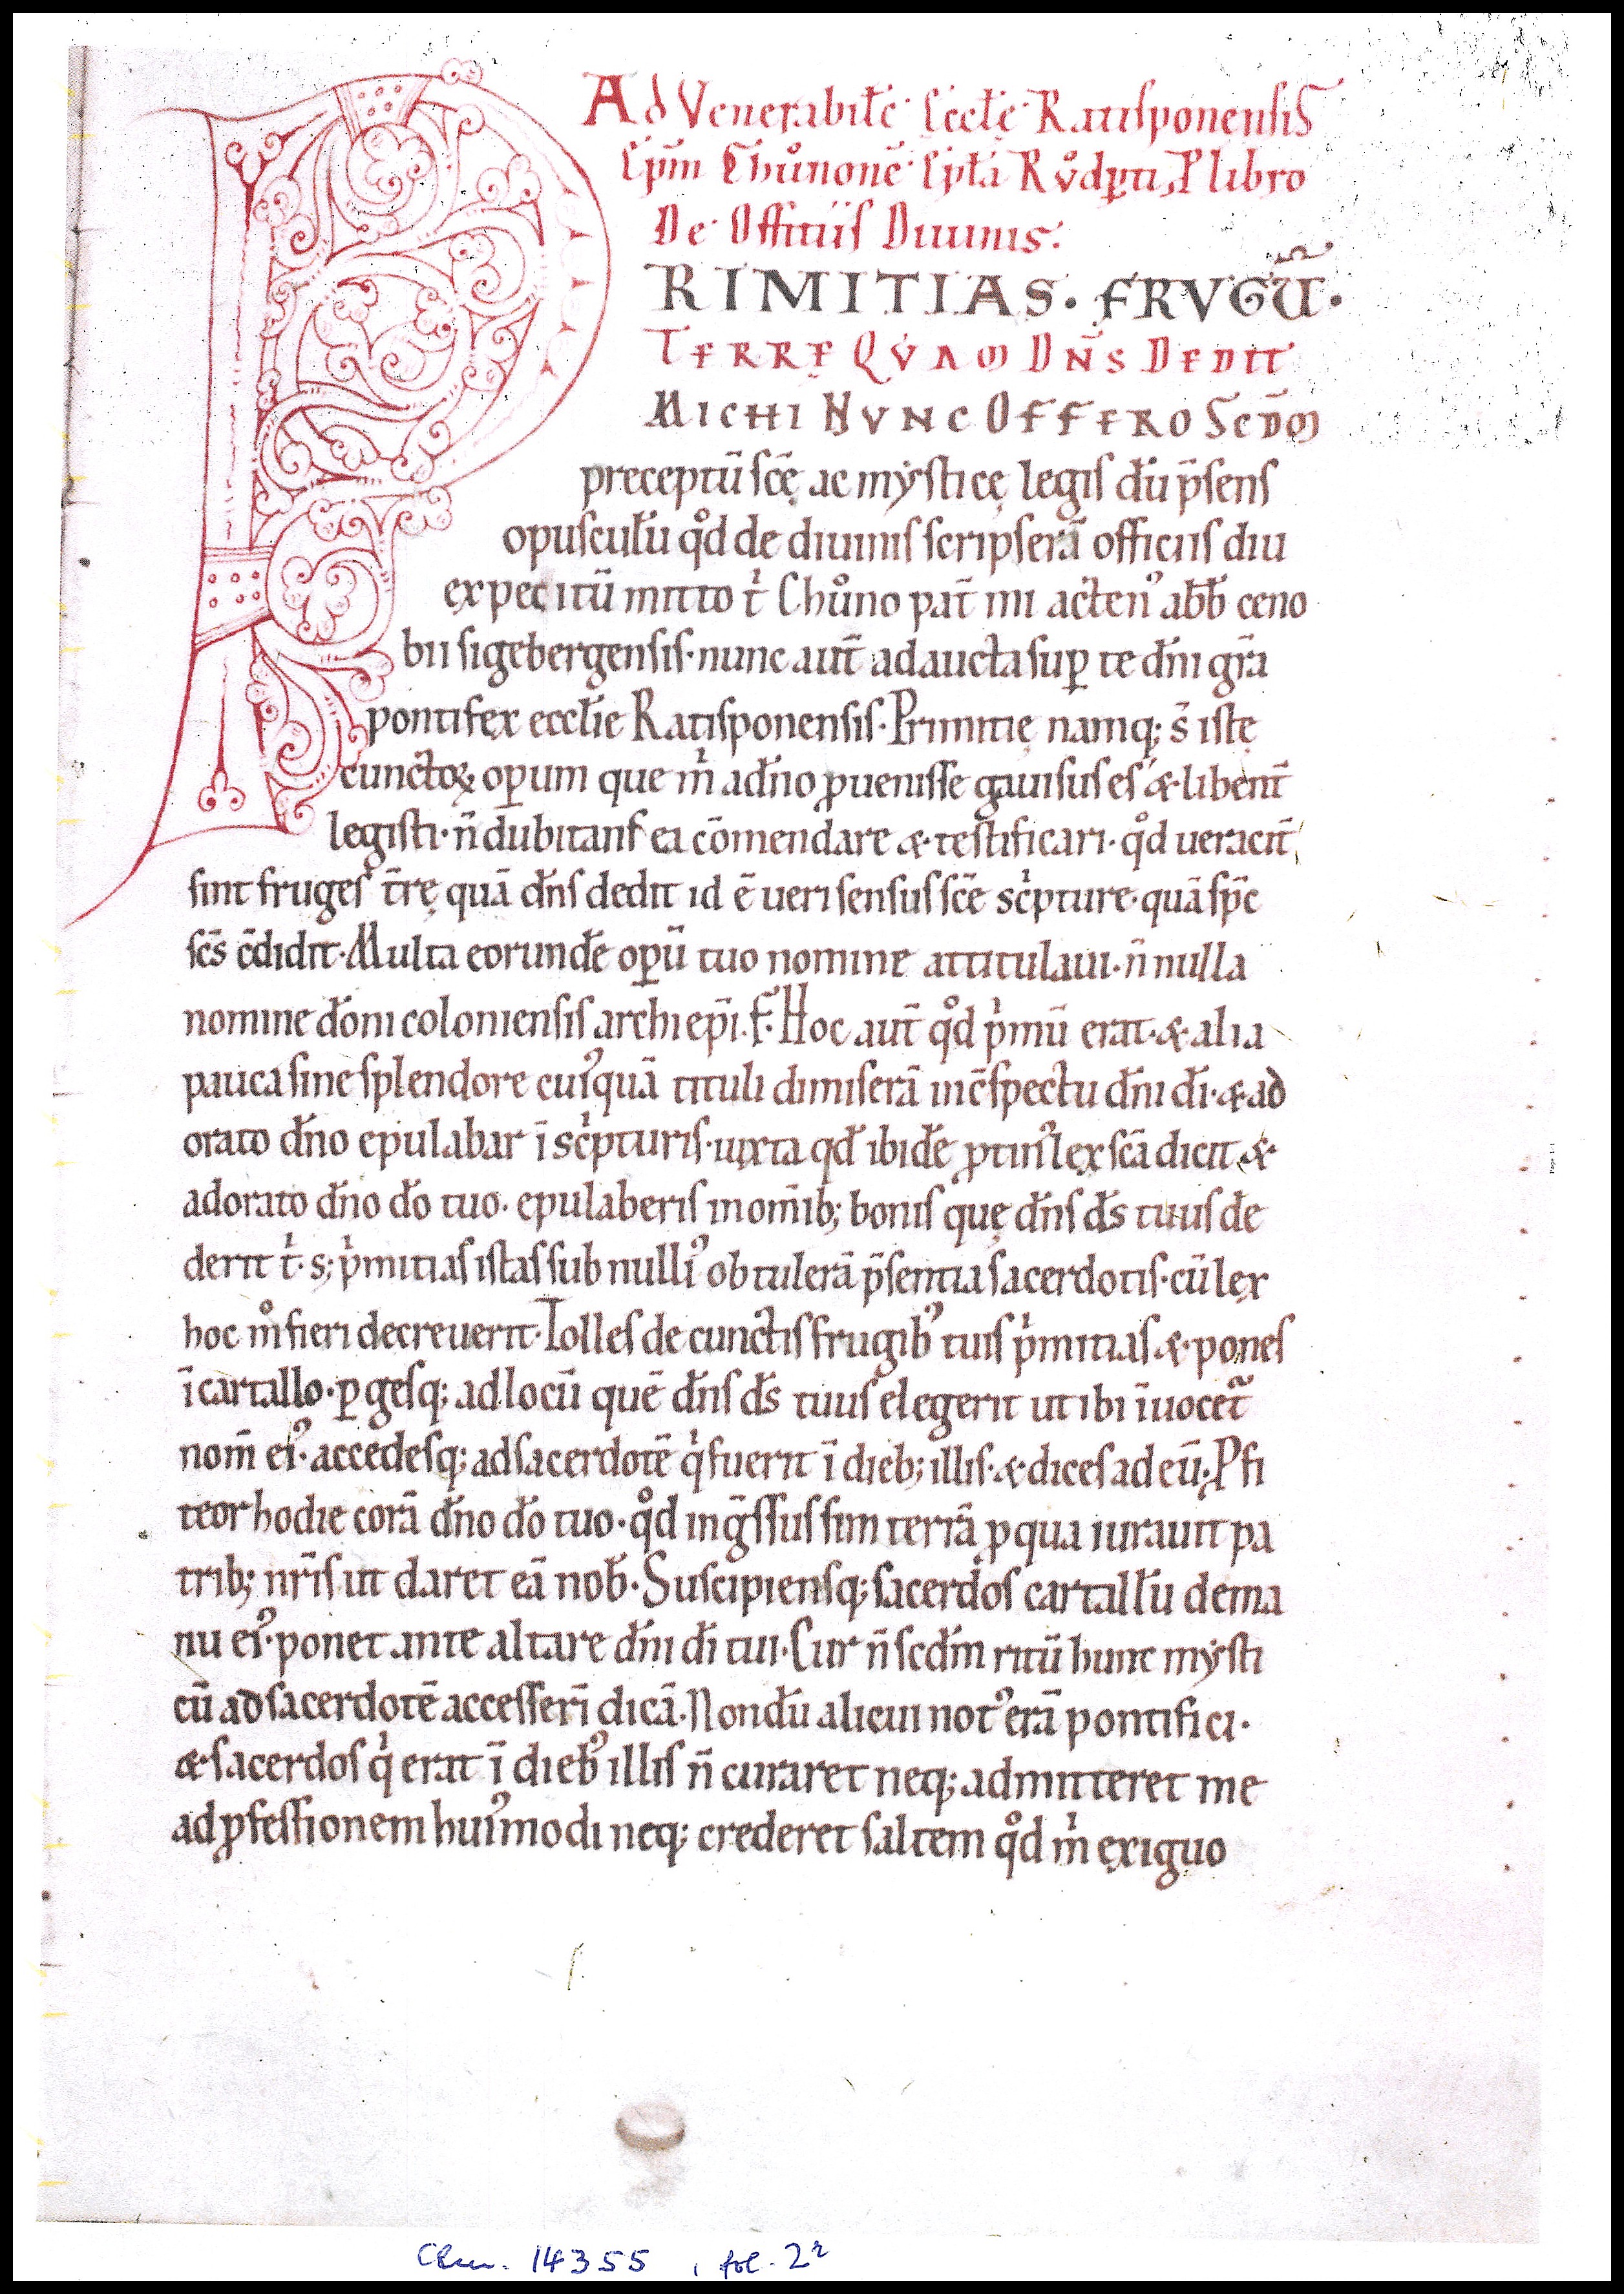 Ad Venerabilē Eccłe Ratisponensis
Epm̄ Chůnonē Epła Růdꝑti, P libro
De Offitiis Diuinis.
PRIMITIAS. FRVGŪ.
TERRĘ QVAM DN̄S DEDIT
MICHI NVNC OFFERO SCD̄M
preceptū scę̄ ac mẏsticę legis dū p̄sens
opusculū qͦd de diuinis scripserā officiis diu
expecitū mitto tⁱ Chůno pat̄ mi acten᾽ abb̄ ceno
bii sigebergensis· nunc aut̄ adaucta suꝑ te dn̄i gr̄a
pontifex eccłie Ratisponensis· Primitię namq; s̄ istę
cunctoꝝ oꝑum que mⁱ a dn̄o ꝓuenisse gauisus es· & libent̄
legisti· n̄ dubitans ea cōmendare & testificari· qͦd ueracit̄
sint fruges t̄rę quā dn̄s dedit id ē ueri sensus scē scⁱpture· quā sp̄c
scs̄ c̄didit· Multa eorundē oꝑū tuo nomine attitulaui· n̄ nulla
nomine dōni coloniensis archiepī· F· Hoc aut̄ qͦd pⁱmū erat· & alia
pauca sine splendore cui᾽quā tituli dimiserā in c̄spectu dn̄i dī· & ad
orato dn̄o epulabar ī scⁱpturis· iuxta qd̄ ibidē ꝓtin᾽ lex scā dicit &
adorato dn̄o dō tuo· epulaberis in om̄ib; bonis quę dn̄s ds̄ tuus de
derit tⁱ· s; pⁱmitias istas sub nulli᾽ obtulerā p̄sentia sacerdotis· cū lex
hoc mͦ fieri decreuerit· Tolles de cunctis frugib᾽ tuis pⁱmitias & pones
ī cartallo· ꝑgesq; ad locū quē dn̄s ds̄ tuus elegerit ut ibi īuocet᷑
nom̄ ei᾽· accedesq; ad sacerdotē qⁱ fuerit ī dieb; illis· & dices ad eū· Pfi
teor hodie corā dn̄o dō tuo· qͦd inḡssus sim terrā ꝓ qua iurauit pa
trib; nr̄is ut daret eā nob̄· Suscipiensq; sacerdos cartallū de ma
nu ei᾽· ponet ante altare dn̄i dī tui· Cur n̄ scdm̄ ritū hunc mẏsti
cū ad sacerdotē accesserī dicā· Nondū alicui not᾽ erā pontifici·
& sacerdos qⁱ erat ī dieb᾽ illis n̄ curaret neq; admitteret me
ad ꝓfessionem hui᾽modi neq; crederet saltem qͦd mⁱ exiguo
Clm. 14355, fol. 2ʳ